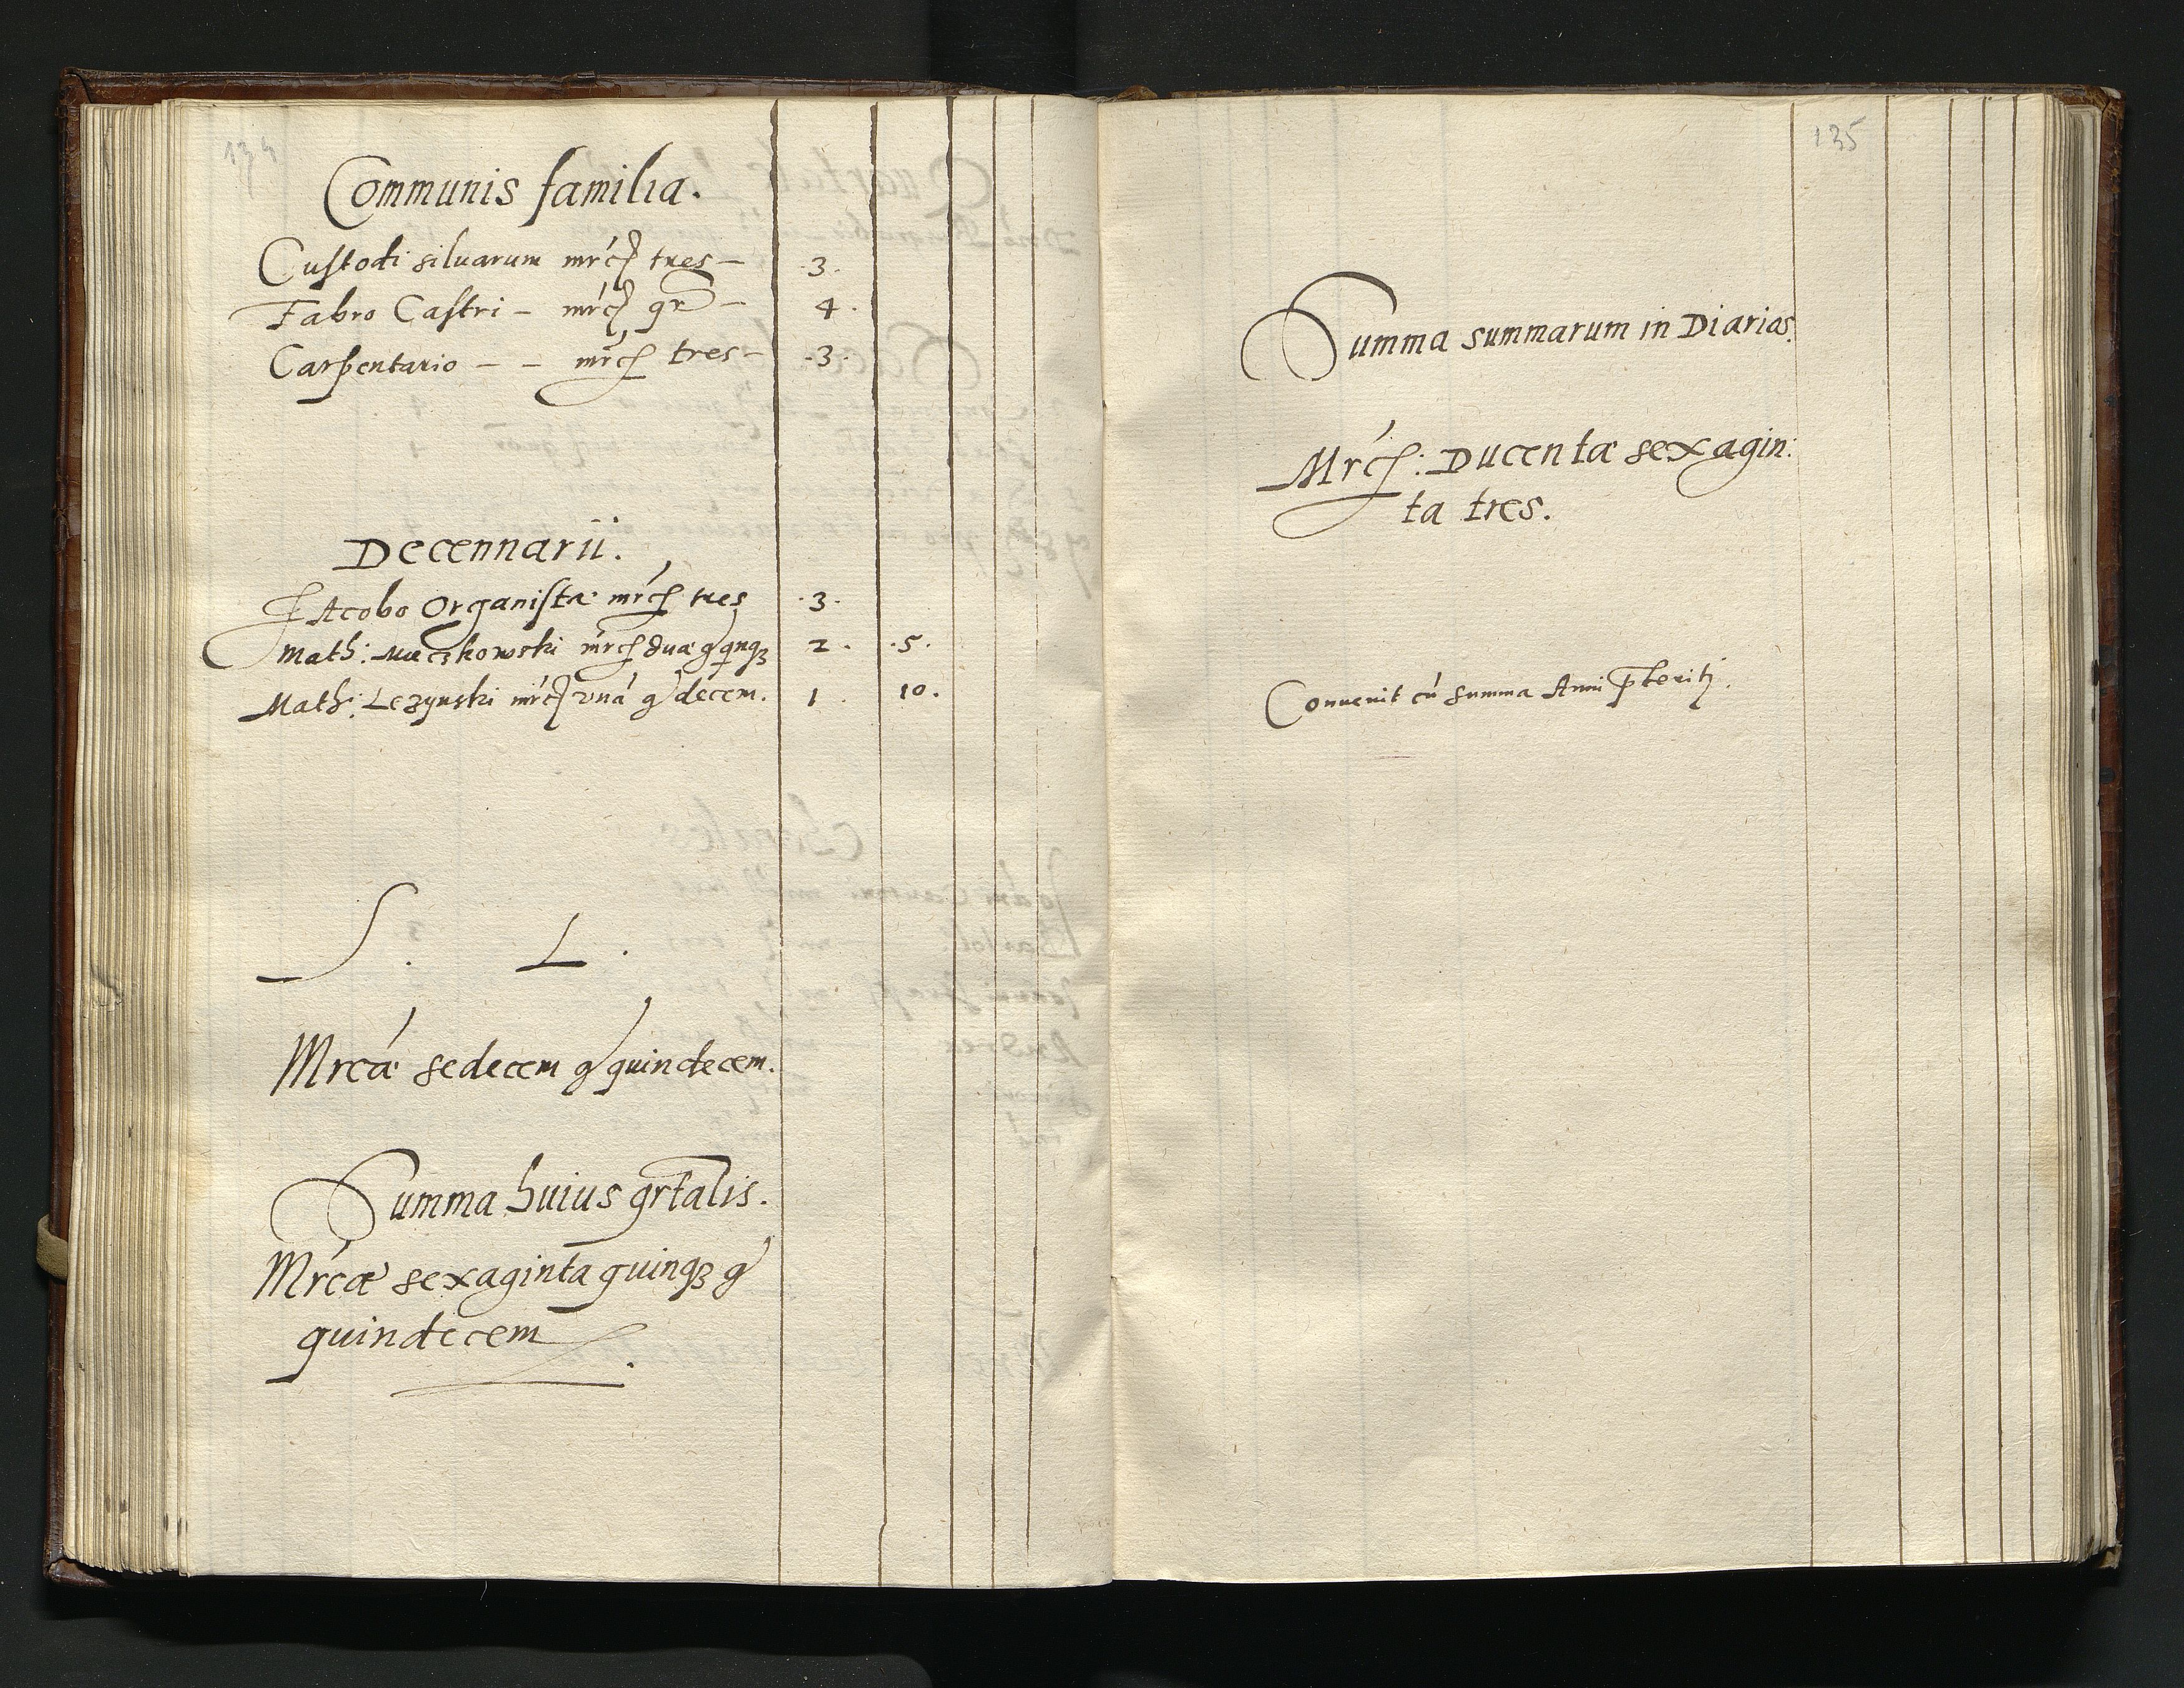 134
Communis familia.
Custodi siluarum mrc̃ tres – .3.
Fabro Castri – mrc̃ qr – 4.
Carpentario – – mrc̃ tres – .3.
Decennarii.
Iacobo Organistæ mrc̃ tres .3.
Math: mrc̃ duæ g qnq3 2. .5.
Math: Lezynski mrc̃ vná g decem. 1. 10.
S. L.
Mrcæ sedecem g quindecem.
Summa huius qrtalis.
Mrcæ sexaginta quinq3 g
quindecem
135
Summa summarum in Diarias.
Mrc̃: Ducentæ sexagin:
ta tres.
Conuenit cũ summa Anni p̃teritj.